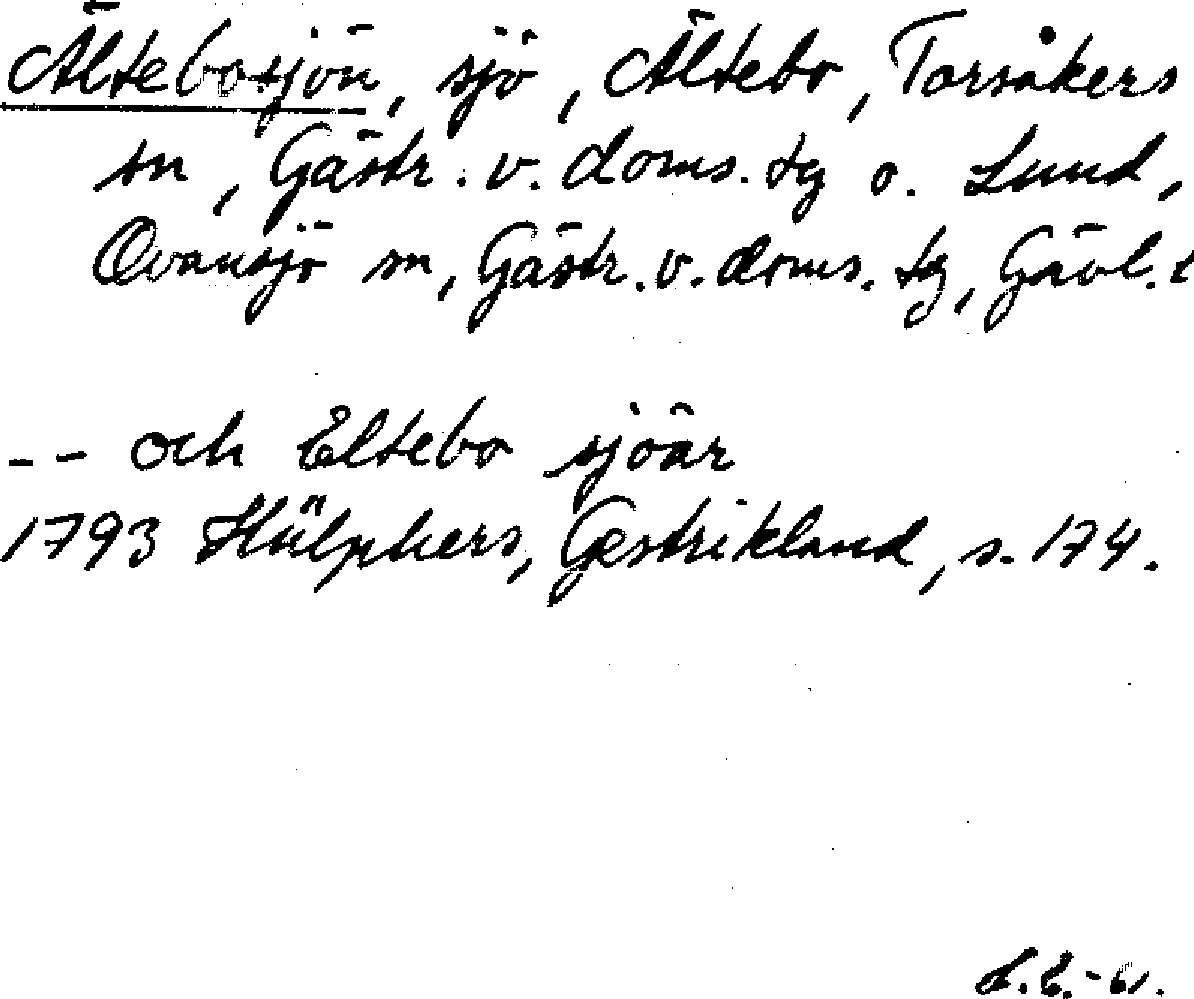 Ältebosjön, sjö, Ältebo, Torsåkers
sn, Gästr. v. doms. tg o. Lund,
Ovansjö sn, Gästr. v. doms. tg, Gävl. l
-- och Eltebo sjöar
1793 Hülphers, Gestrikland, s. 174.
L.E.-61.